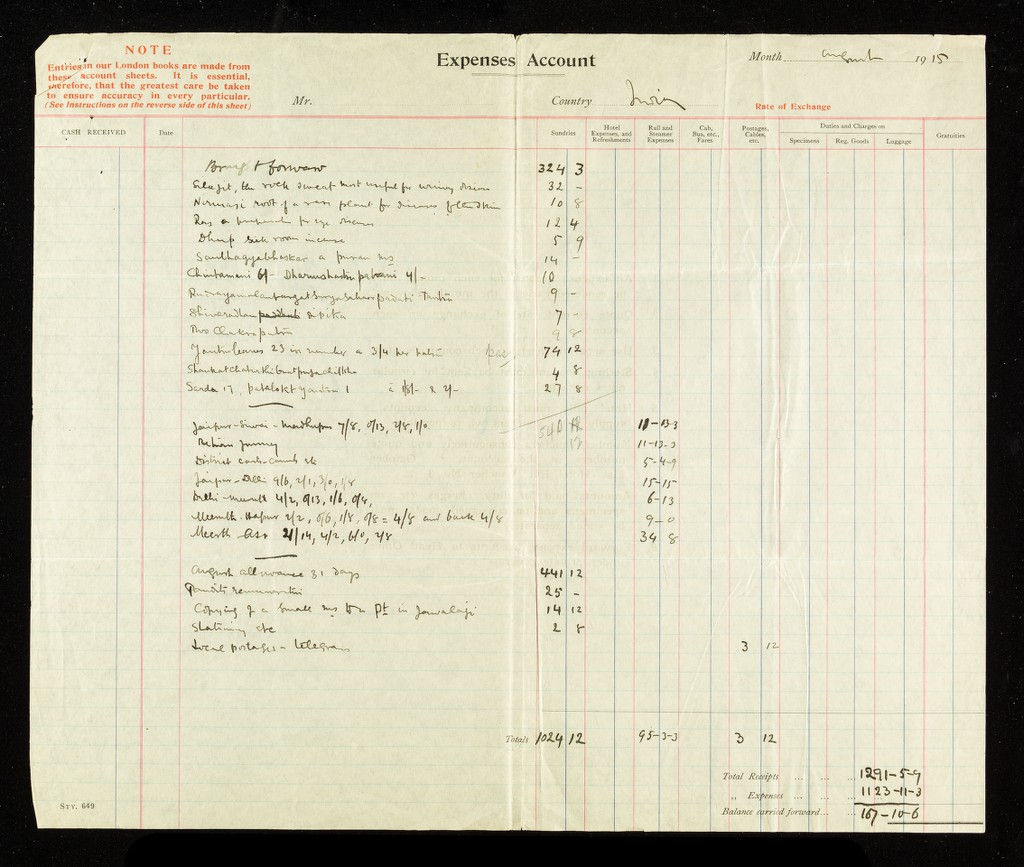 NOTE
Entries in our London books are made from
these account sheets. It is essential,
therefore, that the greatest care be taken
to ensure accuracy in every particular.
(See Instructions on the reverse side of this sheet)
Expenses Account
Month August 1915
Mr.
Country India
Rate of Exchange
CASH RECEIVED Date Sundries Hotel Expenses, and Refreshments Rail and Steamer Expenses Cab, Bus, etc., Fares Postages, Cables, etc. Duties and Charges on Specimens Reg. Goods Luggage Gratuities
Brought forward 324 3
the rock sweat most useful for 32 -
root of a plant for diseases of the skin 10 8
a preparation for eye diseases 12 4
Dhup sick room incense 5 9
a puran ms 14 -
Chintamani 6/- 4/- 10
Tantra 9 -
dipika 7 -
Two Chakrapatra 9 8
23 in number a 3/4 per 74 12
4 8
Sarda 17, 1 a 1/8/- & 2/- 27 8
540 12
Jaipur - Siwai - Madhupur 7/8, 0/13, 2/8, 1/0 11-13-3
Return journey 11-13-3
District etc 5-4-9
Jaipur - Delhi 9/6, 2/1, 3/0, 1/8 15-15
Delhi - Meerutt 4/2, 0/13, 1/6, 0/8, 6-13
Meerutt - Hapur 2/2, 0/6, 1/8, 0/8 = 4/8 and back 4/8 9-0
Meerth 21/14, 4/2, 6/0, 2/8 34 8
August allowance 31 days 441 12
Pandits remuneration 25 -
Copying of a small ms to a Pt in Jawalaji 14 12
Stationery etc 2 8
Local postages - telegram 3 12
Totals 1024 12 95-3-3 3 12
Total Receipts ... ... ... 1291-5-9
„ Expenses ... ... ... 1123-11-3
Balance carried forward... ... 167-10-6
STY. 649